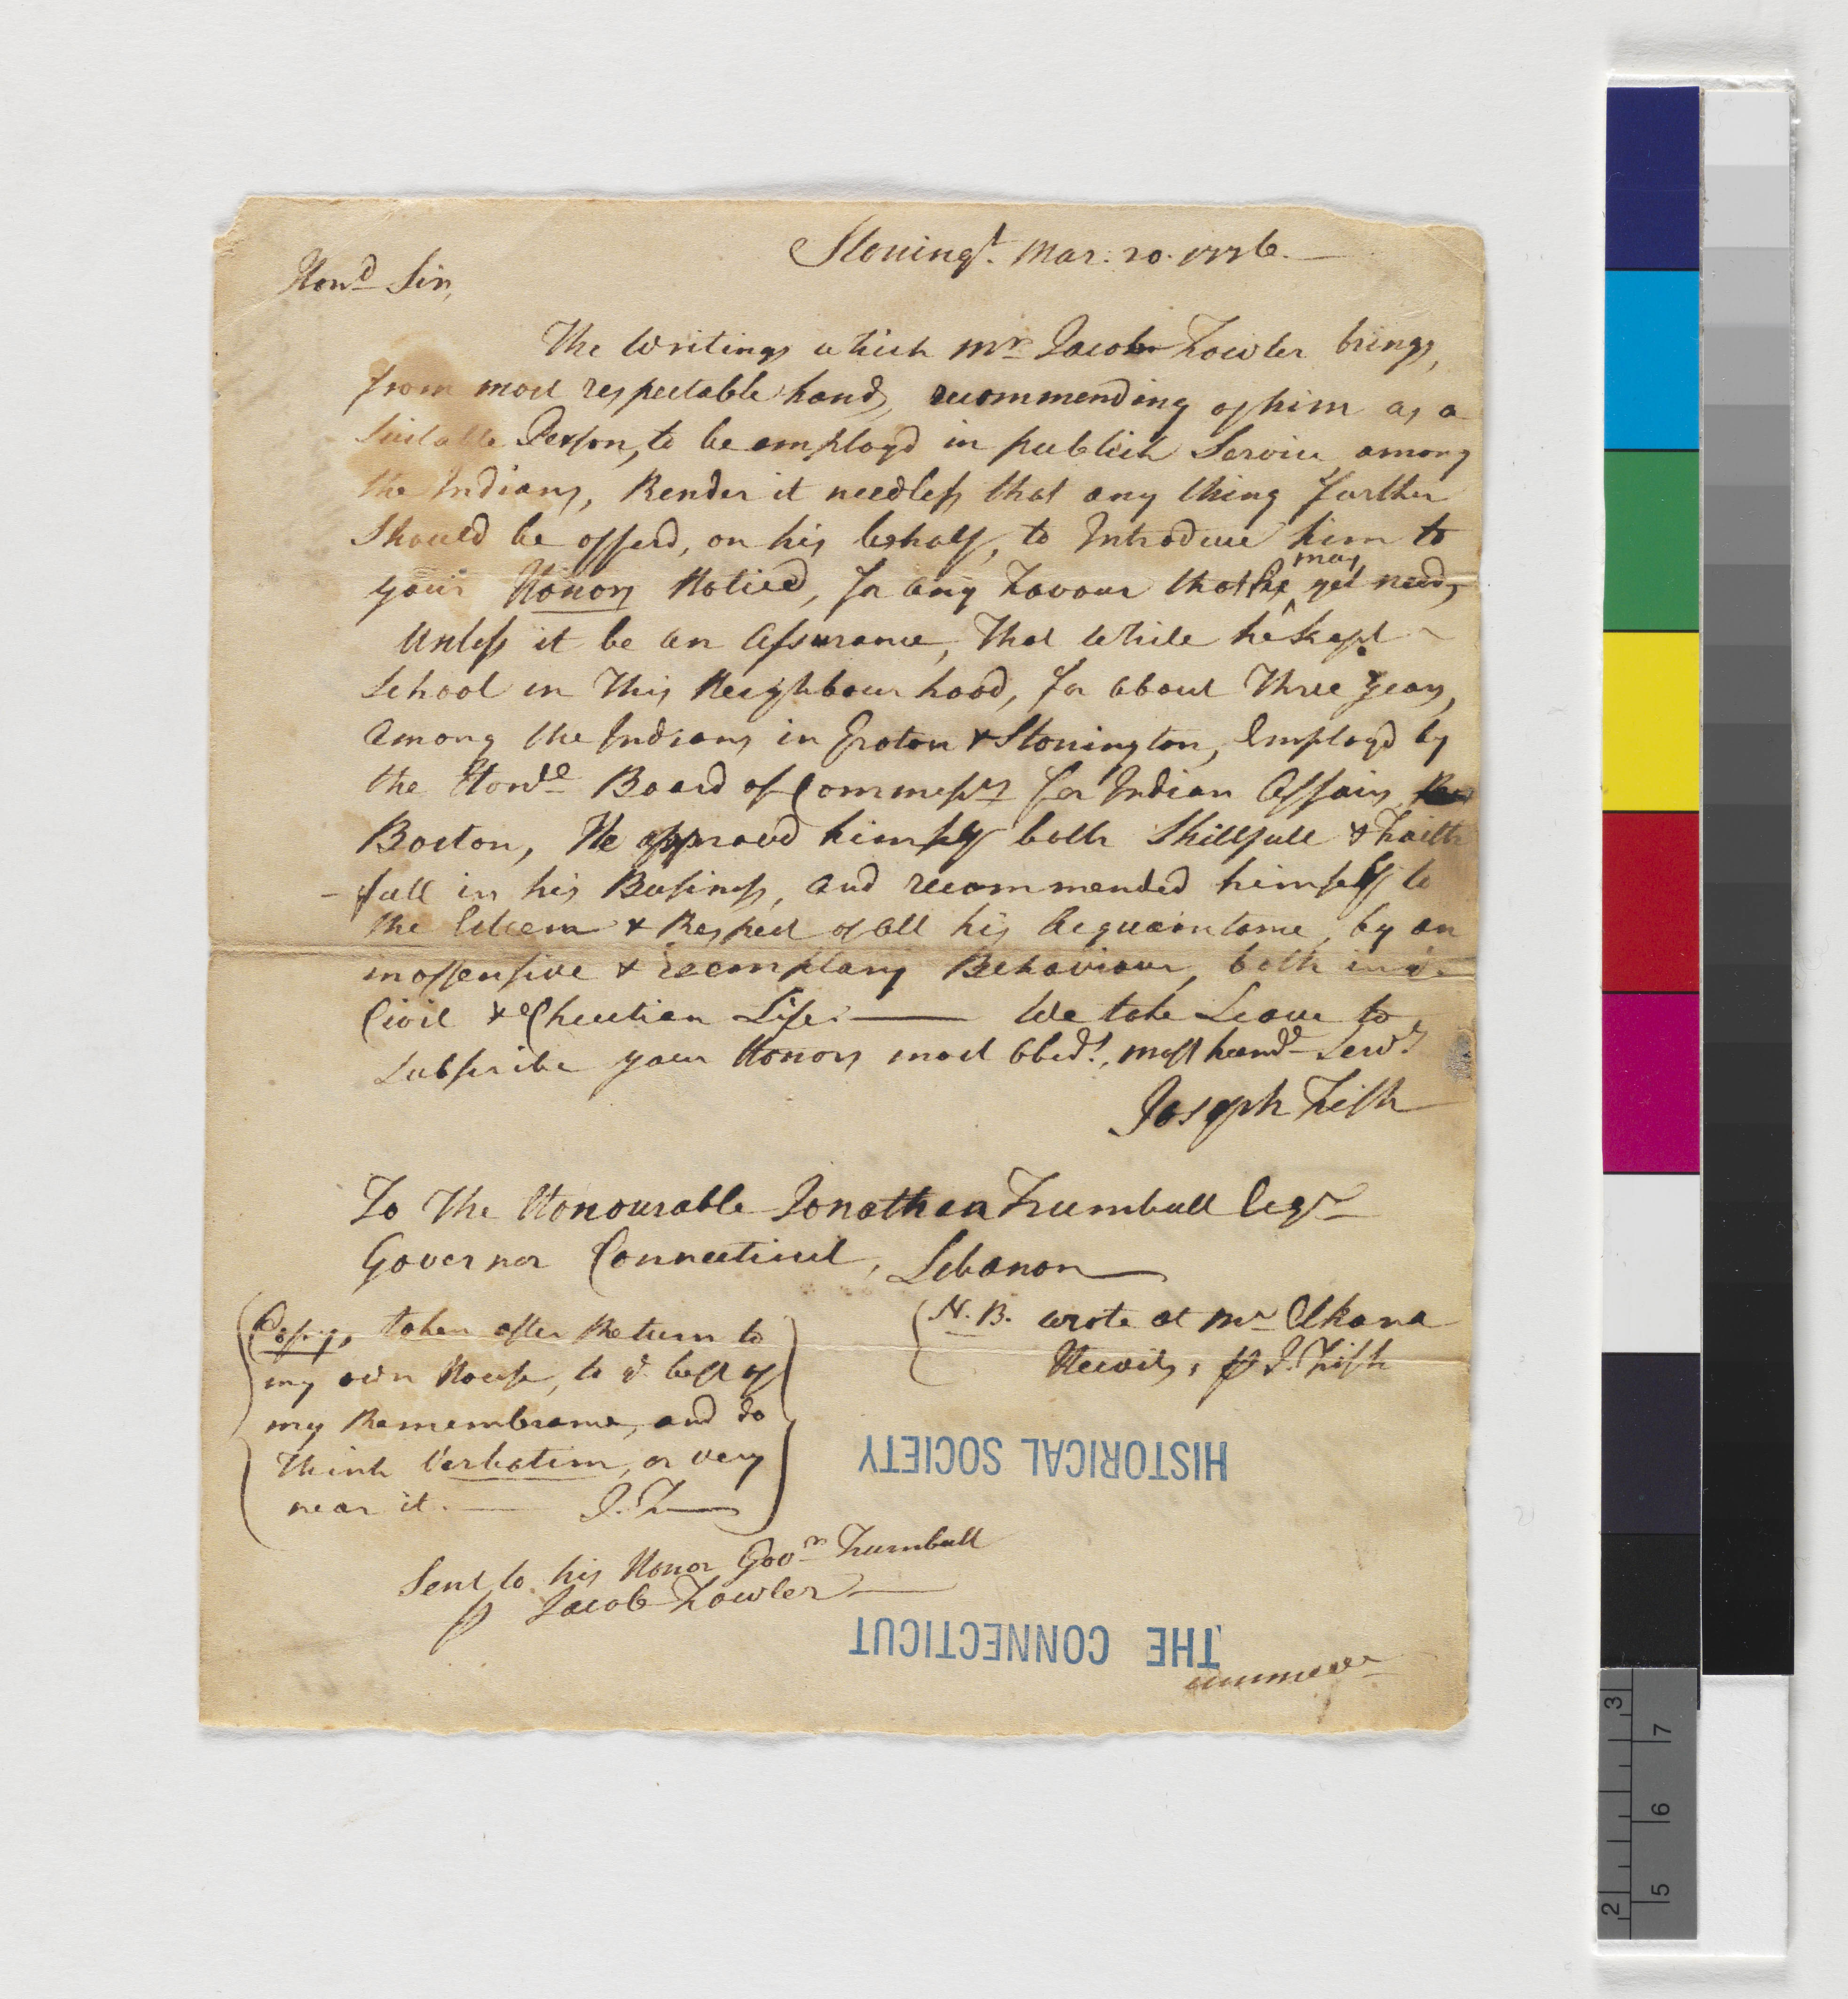 Stoningt. Mar. 20. 1776.
Hond Sir,
The Writings which Mr Jacob Fowler brings,
from most respectable hands, recommending of him as a
Suitable Person, to be employd in publick Service among
the Indians, Render it needless that any thing further
Should be offerd, on his behalf, to Introduce him to
your Honors Notice, for any Favour that he may yet need,
Unless it be an Assurance, That while he kept
School in This Neighbourhood, for about Three years,
Among the Indians in Groton & Stonington, Employd by
the Honble Board of Commissrs for Indian Affairs,
Boston, He approved himself both Skillfull & Faith
-full in his Business, and recommended himself to
the Esteem & Respect of all his Acquaintance, by an
inoffensive & exemplary Behaviour, both in ye
Civil & Christian Life. — We take Leave to
Subscribe your Honors most Obedt., most humb Servt
Joseph Fish
To The Honourable Jonathan Trumbull Esqr
Governor Connecticut, Lebanon
(Copy, taken after Return to
my own House, to ye best of
my Remembrance, and do
Think Verbatim, or very
near it. — J. F—)
(N.B. wrote at Mr Elkana
Hewits, p J. Fish
HISTORICAL SOCIETY
Sent to his Honor Govr Trumbull
p Jacob Fowler
THE CONNECTICUT
2 3
5 6 7